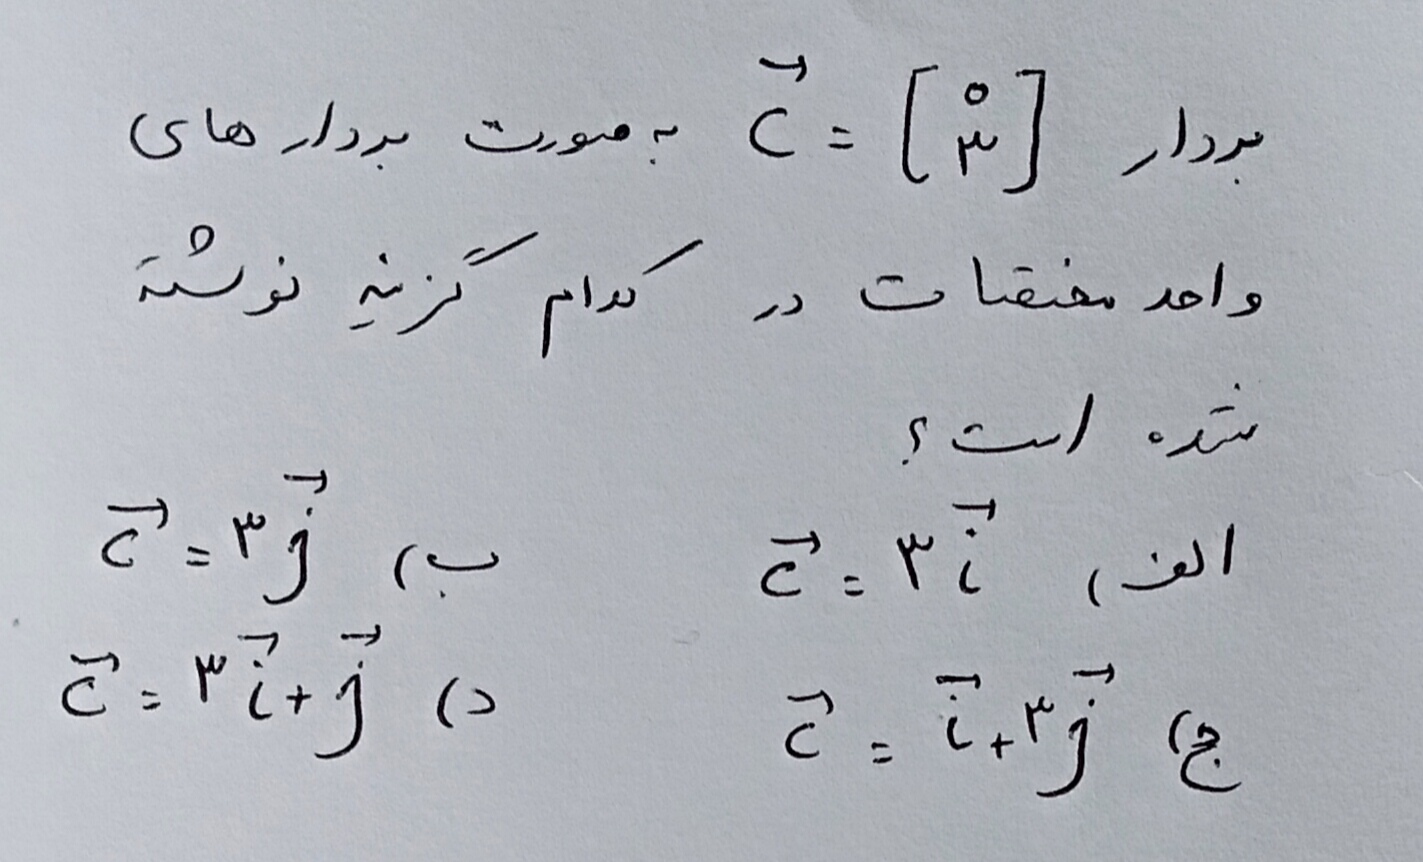 بردار c⃗ = [۰ ۳] به صورت بردار های
واحد مختصات در کدام گزینه نوشته
شده است؟
الف) c⃗ = ۳i⃗ ب) c⃗ = ۳j⃗
ج) c⃗ = i⃗ + ۳j⃗ د) c⃗ = ۳i⃗ + j⃗